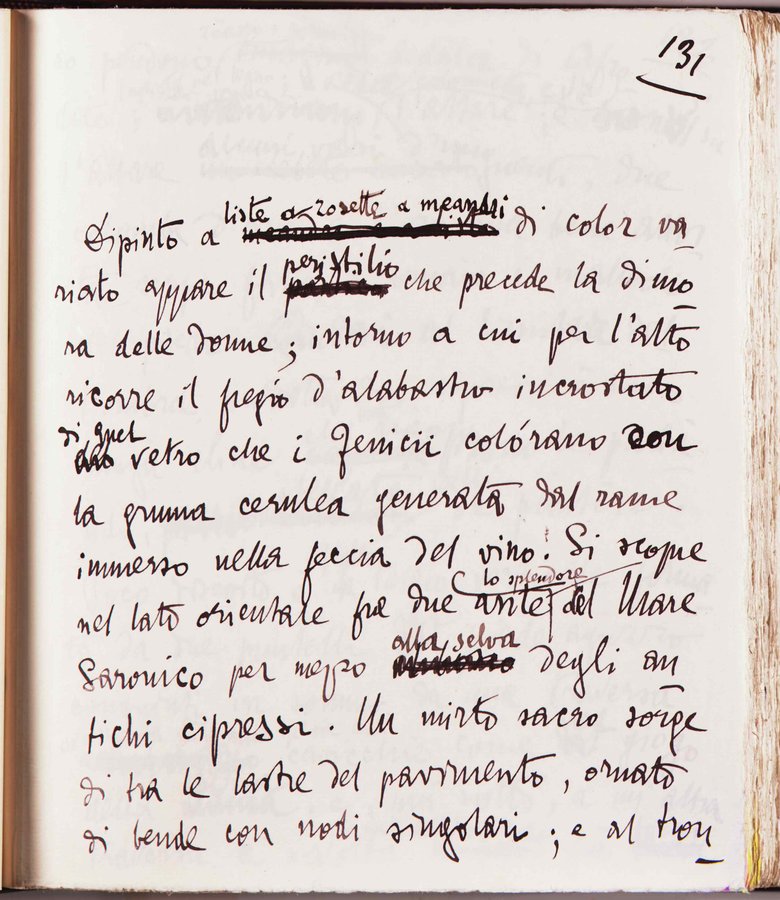 131
liste a rosette a meandri
Dipinto a di color va
riato appare il peristilio che precede la dimo
ra delle donne; intorno a cui per l'alto
ricorre il fregio d'alabastro incrostato
di quel
vetro che i Fenicii colórano con
la gruma cerulea generata dal rame
immerso nella feccia del vino. Si scopre
lo splendore
nel lato orientale fra due ante del Mare
alla selva
Saronico per mezzo degli an
tichi cipressi. Un mirto sacro sorge
di tra le lastre del pavimento, ornato
di bende con nodi singolari; e al tron